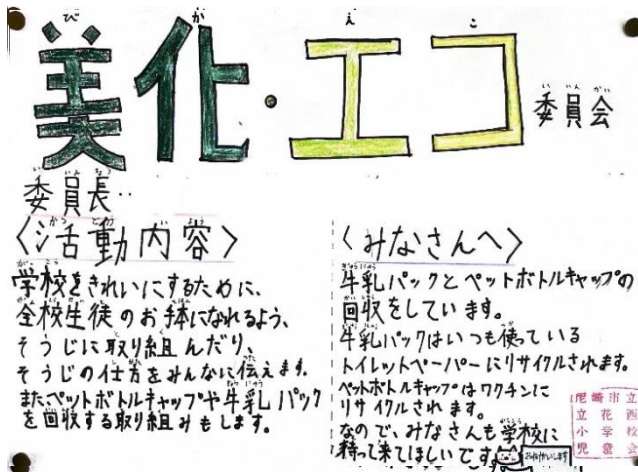 び か え こ
美化・エコ
いいんかい
委員会
委員長‥
〈活動内容〉
学校をきれいにするために、
全校生徒のお手本になれるよう、
そうじに取り組んだり、
そうじの仕方をみんなに伝えます。
またペットボトルキャップや牛乳パック
を回収する取り組みもします。
〈みなさんへ〉
牛乳パックとペットボトルキャップの
回収をしています。
牛乳パックはいつも使っている
トイレットペーパーにリサイクルされます。
ペットボトルキャップはワクチンに
リサイクルされます。
なので、みなさんも学校に
持って来てほしいです
おねがいします
尼崎市立
立花西
小学校
児童会